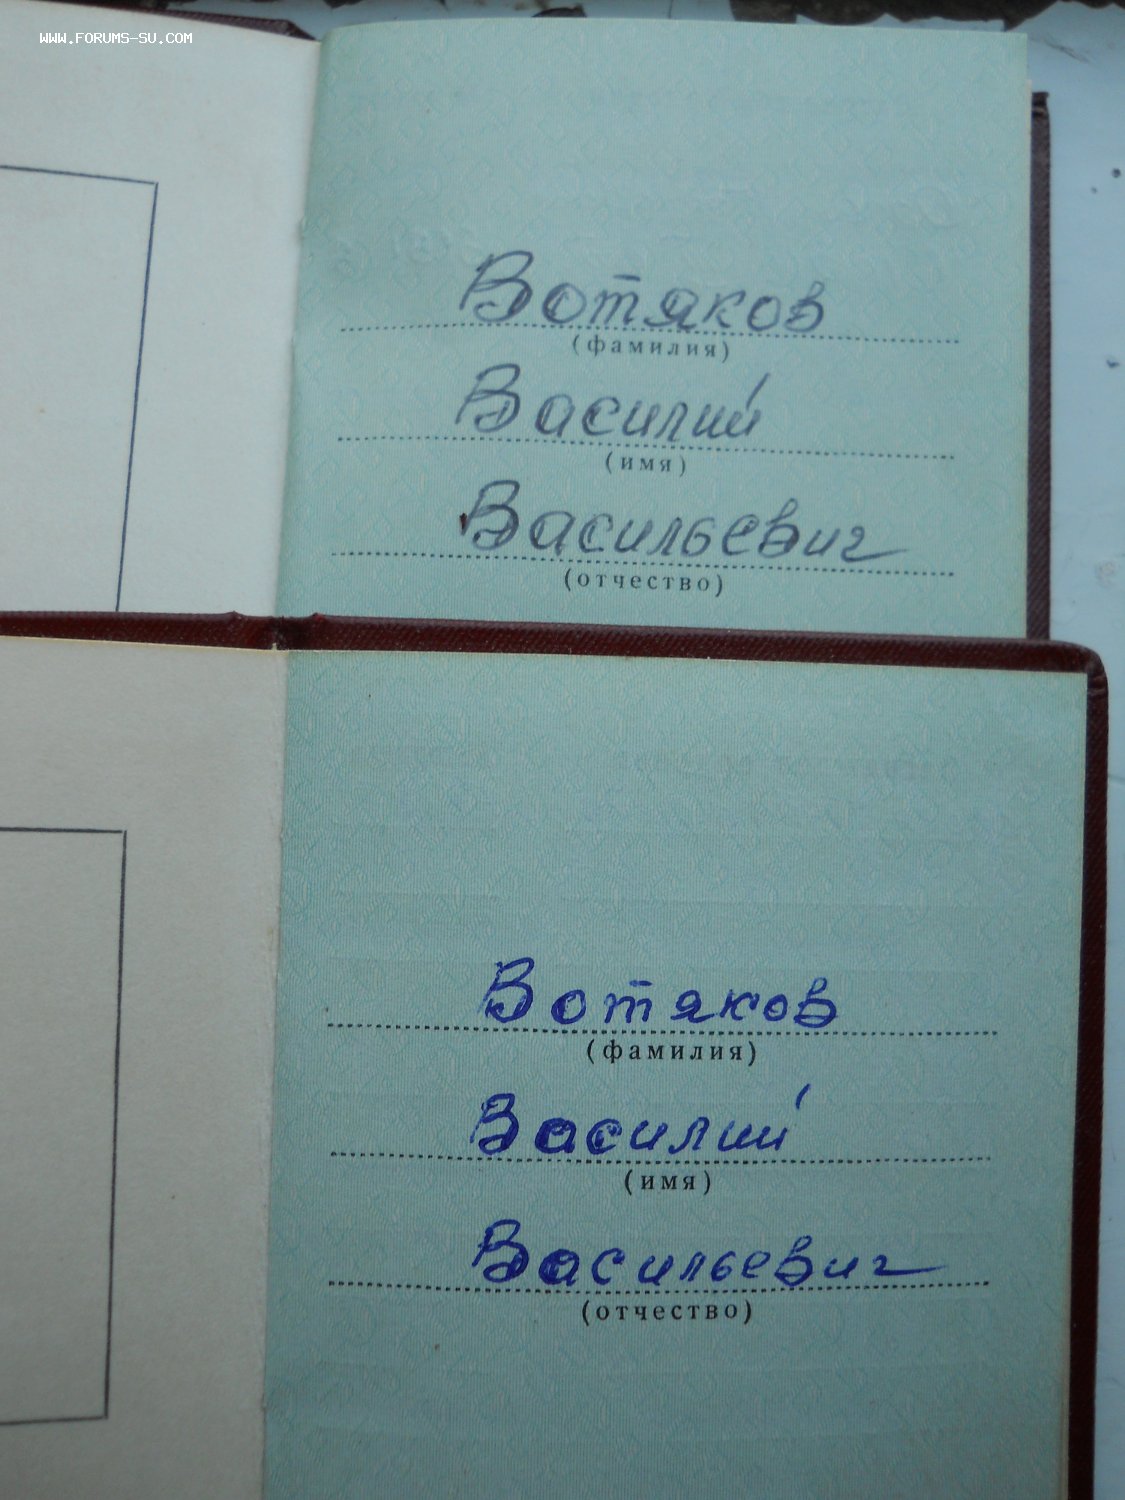 WWW.FORUMS-SU.COM
Вотяков
(фамилия)
Василий
(имя)
Васильевич
(отчество)
Вотяков
(фамилия)
Василий
(имя)
Васильевич
(отчество)